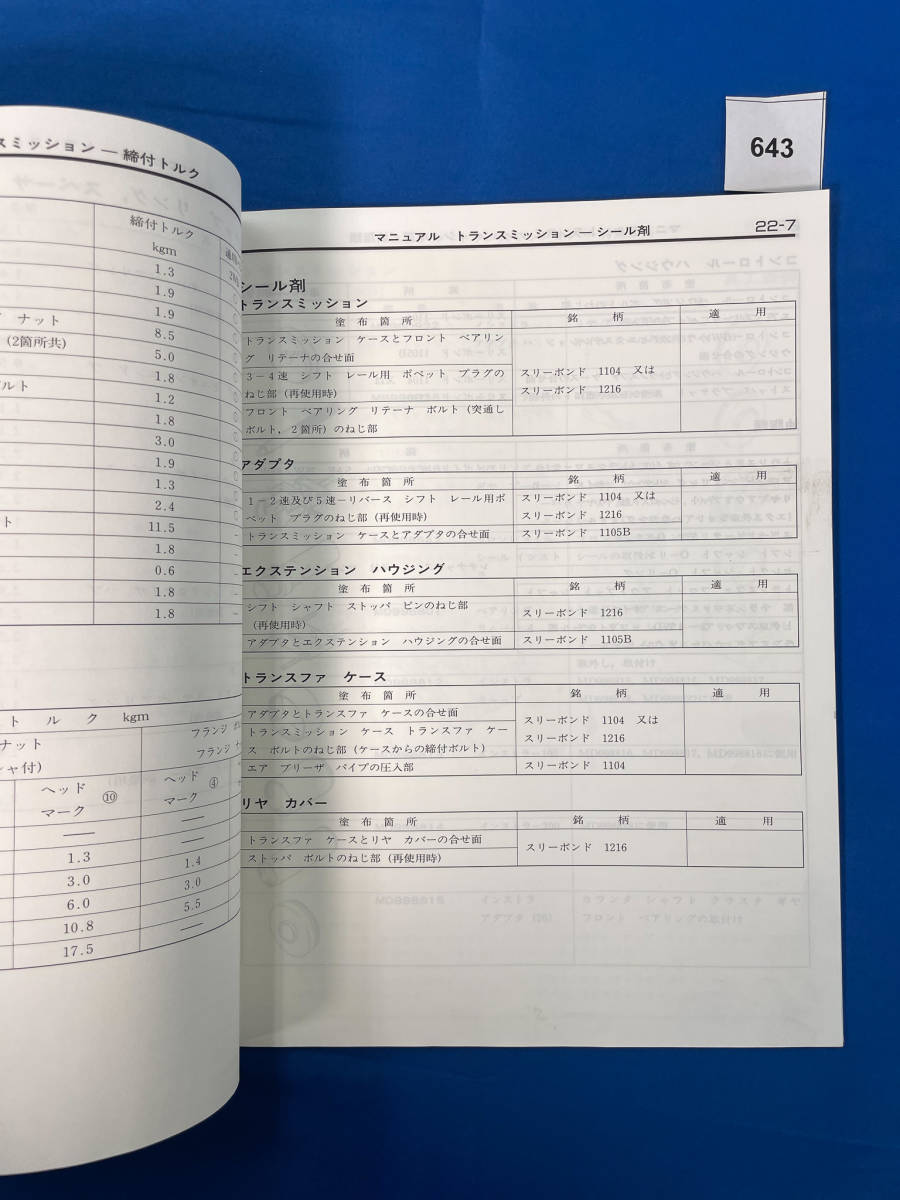 643
スミッション ― 締付トルク
締付トルク
kgm
1.3
1.9
1.9
ナット
8.5
(2箇所共)
5.0
1.8
ルト
1.2
1.8
3.0
1.9
1.3
2.4
ト
11.5
1.8
0.6
1.8
1.8
トルク kgm
ナット
フランジ
フランジ
ャ付)
ヘッド
マーク ⑩
ヘッド
マーク ④
1.3
3.0
1.4
6.0
3.0
10.8
5.5
17.5
マニュアル トランスミッション ― シール剤
22-7
シール剤
トランスミッション
塗布箇所 銘柄 適用
トランスミッション ケースとフロント ベアリン
グ リテーナの合せ面
3-4速 シフト レール用 ポペット プラグの
ねじ部(再使用時)
フロント ベアリング リテーナ ボルト(突通し
ボルト, 2箇所)のねじ部
スリーボンド 1104 又は
スリーボンド 1216
アダプタ
塗布箇所 銘柄 適用
1-2速及び5速-リバース シフト レール用ポ
ペット プラグのねじ部(再使用時)
スリーボンド 1104 又は
スリーボンド 1216
トランスミッション ケースとアダプタの合せ面 スリーボンド 1105B
エクステンション ハウジング
塗布箇所 銘柄 適用
シフト シャフト ストッパ ピンのねじ部
(再使用時)
スリーボンド 1216
アダプタとエクステンション ハウジングの合せ面 スリーボンド 1105B
トランスファ ケース
塗布箇所 銘柄 適用
アダプタとトランスファ ケースの合せ面
トランスミッション ケース トランスファ ケー
ス ボルトのねじ部(ケースからの締付ボルト)
スリーボンド 1104 又は
スリーボンド 1216
エア ブリーザ パイプの圧入部 スリーボンド 1104
リヤ カバー
塗布箇所 銘柄 適用
トランスファ ケースとリヤ カバーの合せ面
ストッパ ボルトのねじ部(再使用時)
スリーボンド 1216